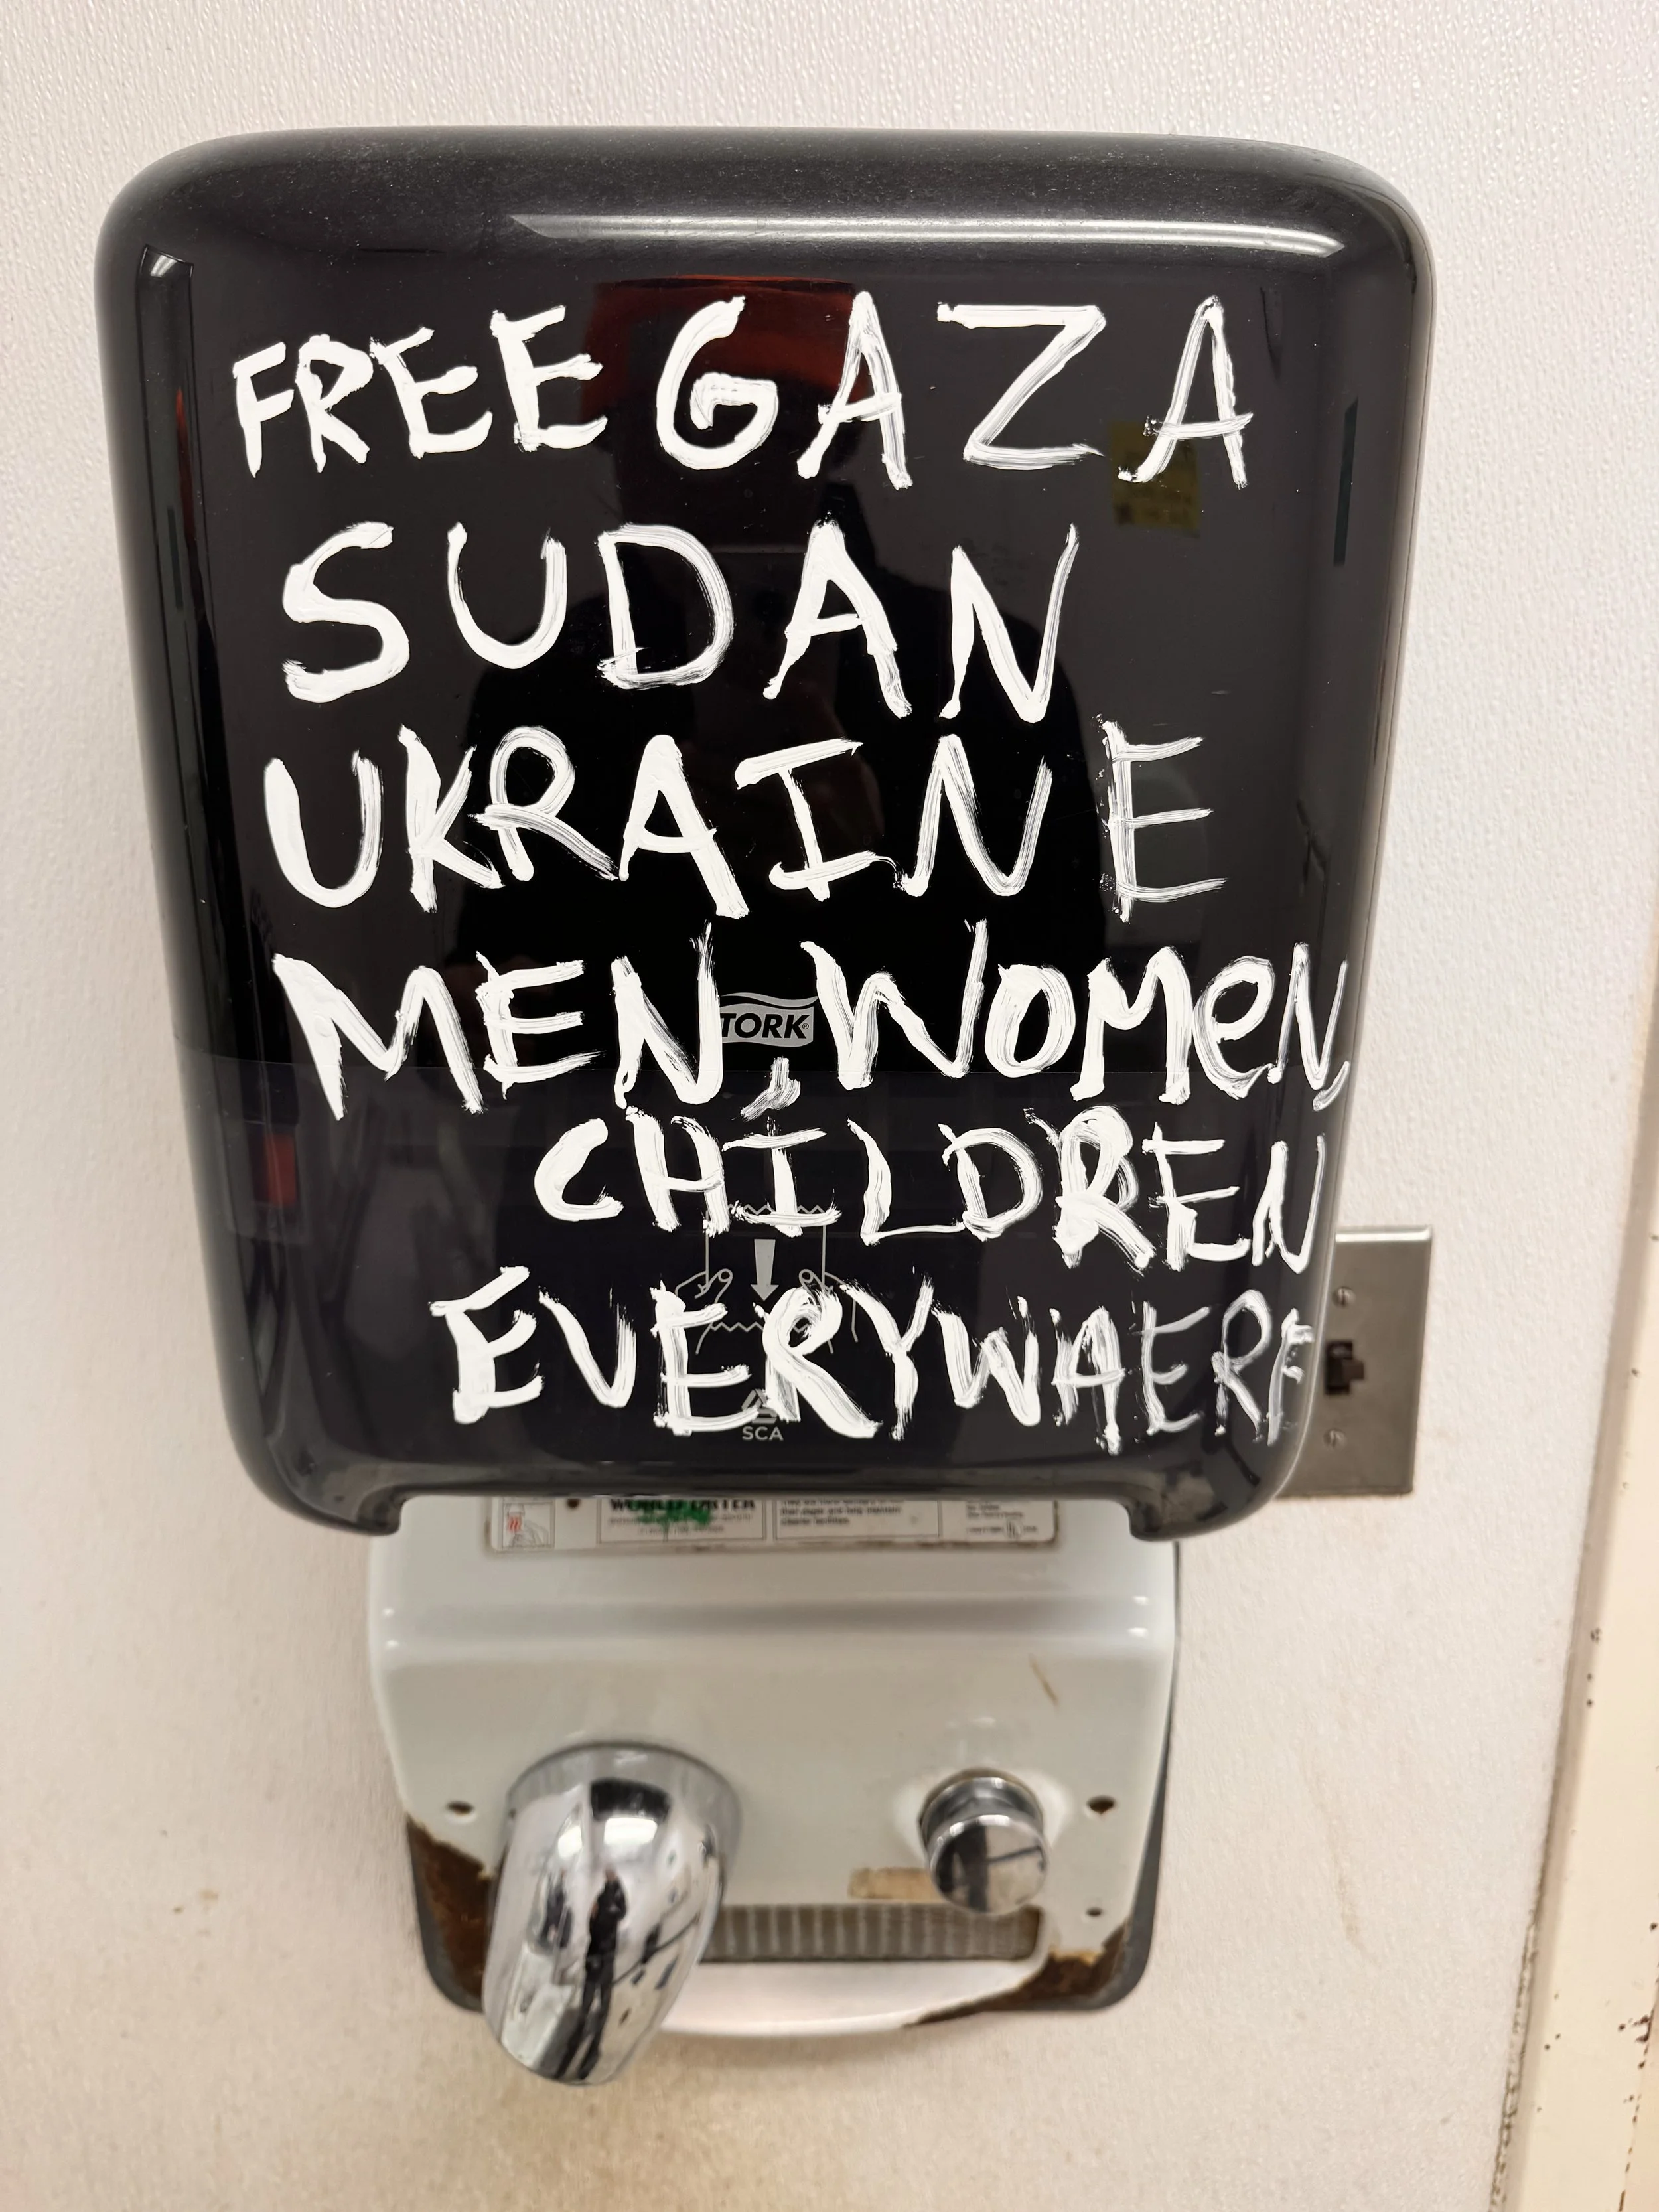 FREE GAZA
SUDAN
UKRAINE
MEN, WOMeN,
TORK
CHILDREN
EVERYWHERE
SCA
WORLD DRYER